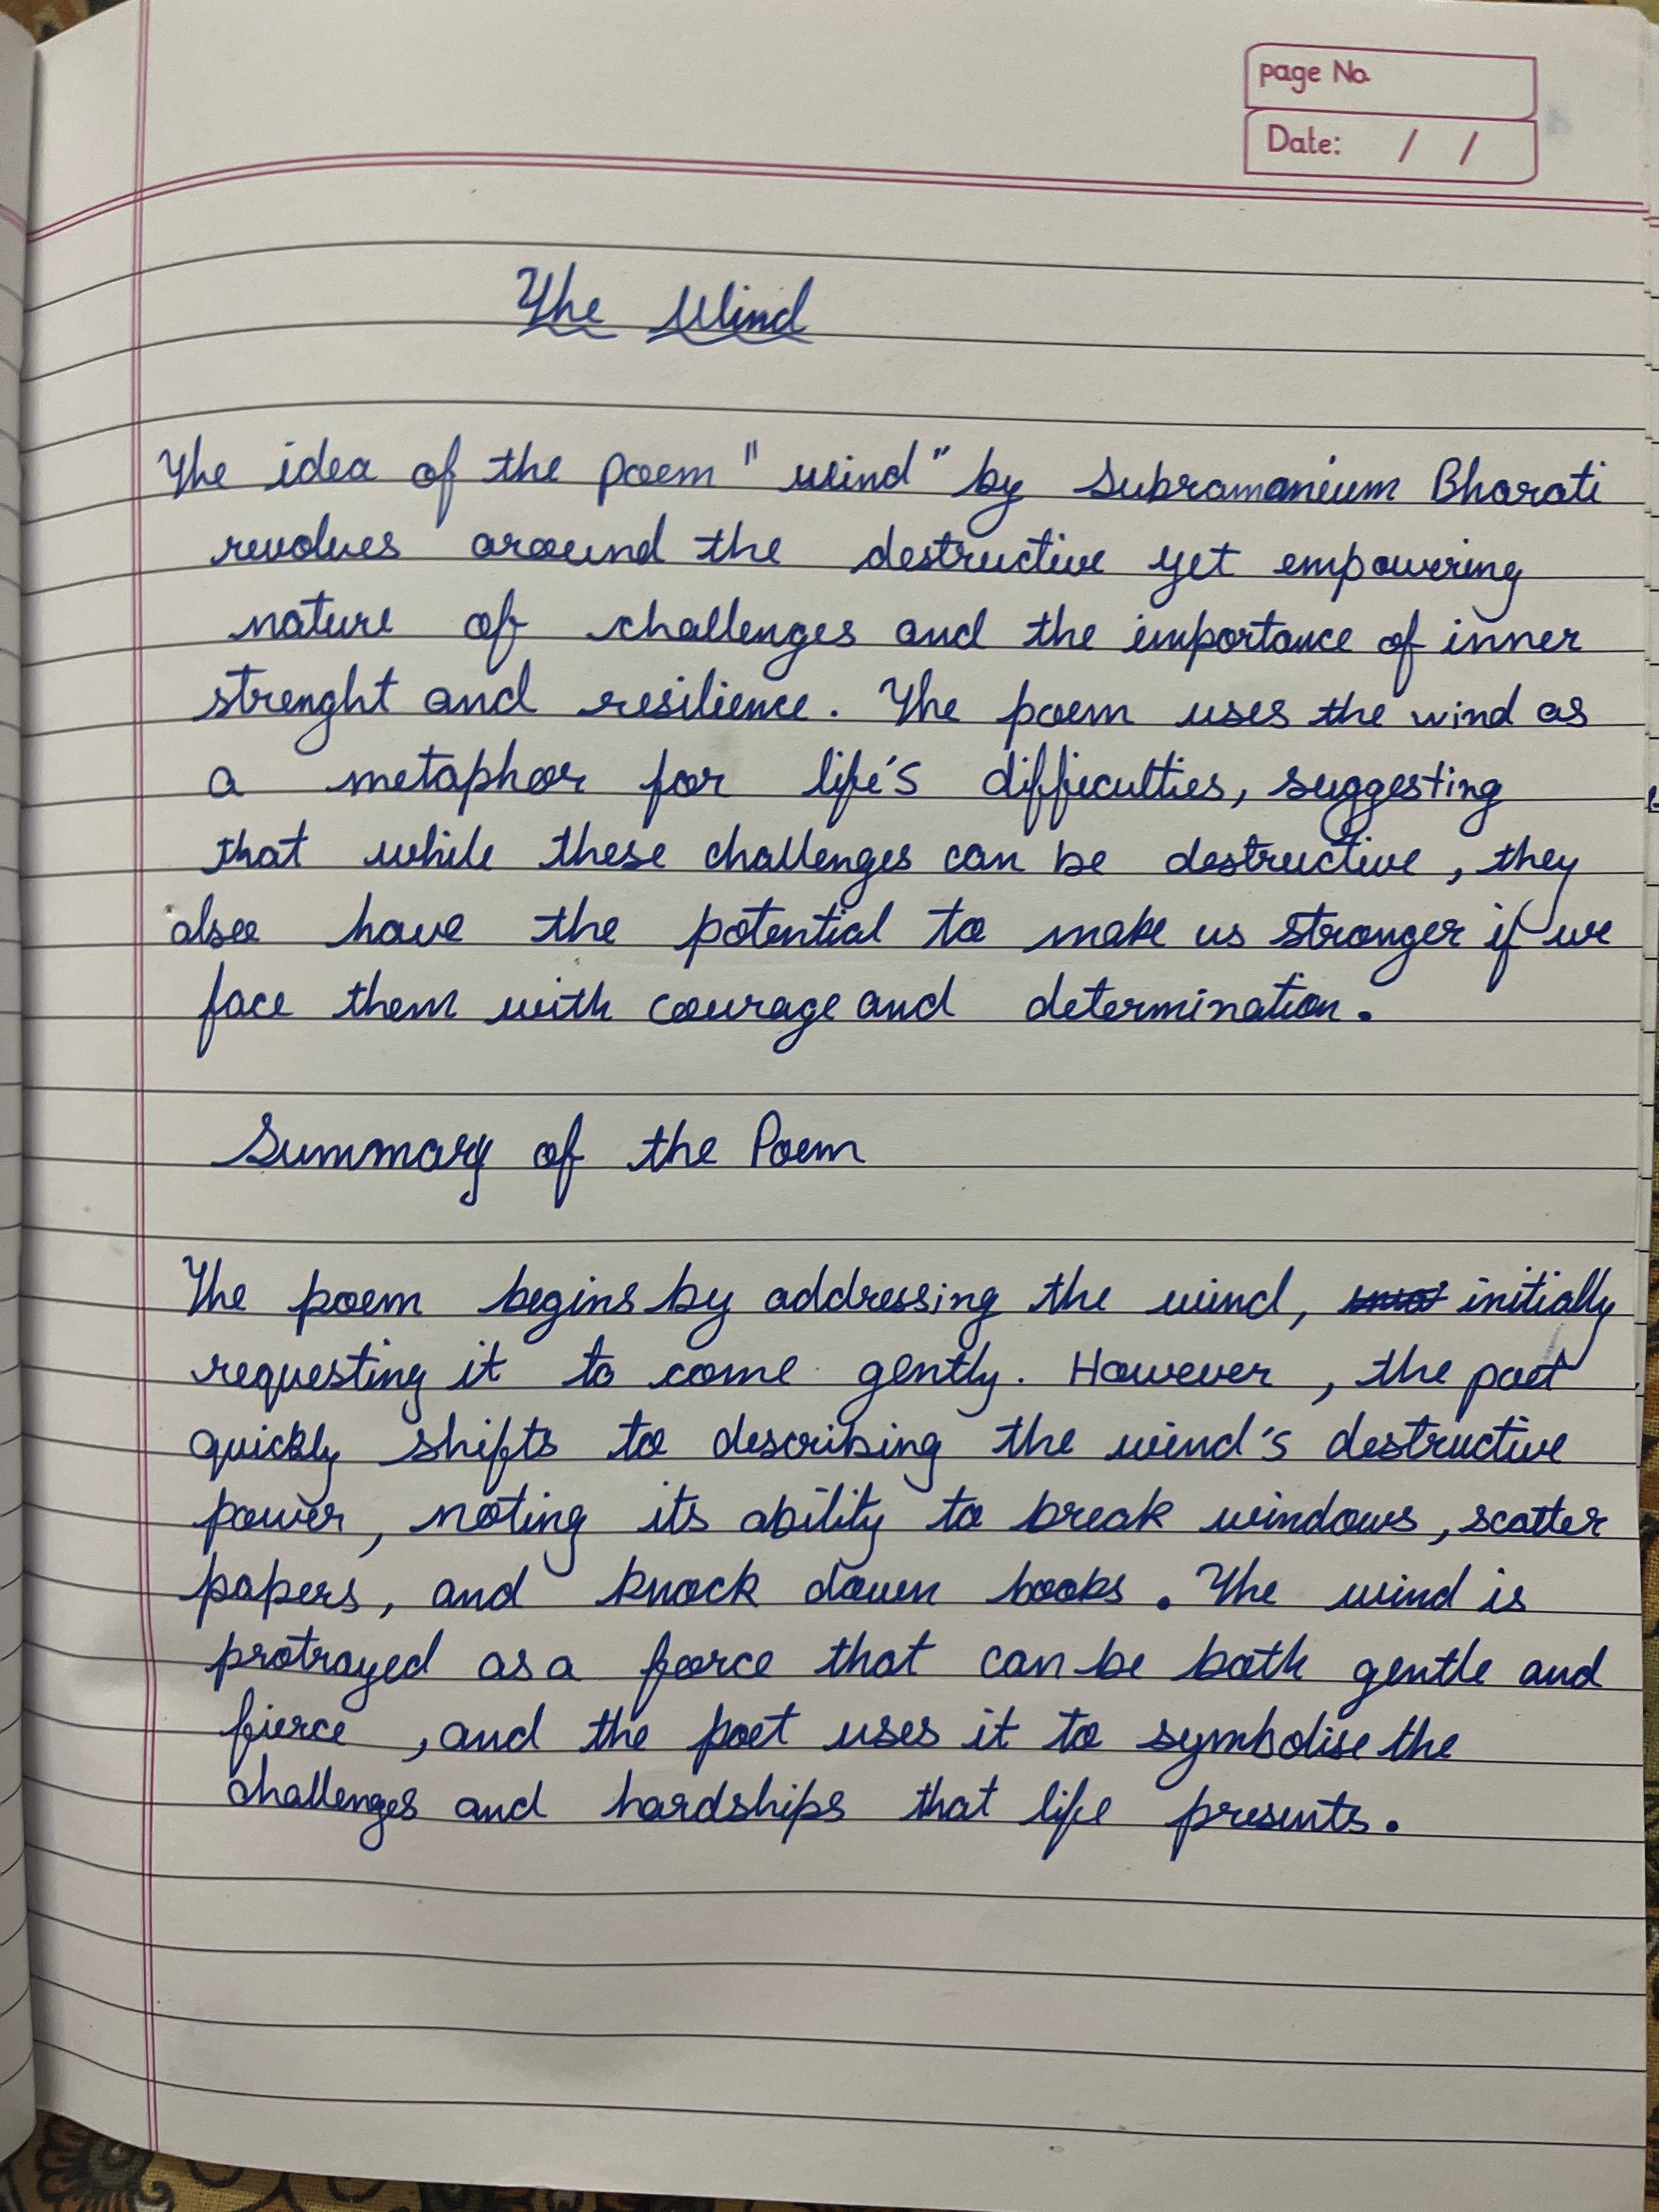 page No.
Date: / /
The Wind
The idea of the poem "wind" by Subramanium Bharati
revolves around the destructive yet empowering
nature of challenges and the importance of inner
strenght and resilience. The poem uses the wind as
a metaphor for life's difficulties, suggesting
that while these challenges can be destructive, they
also have the potential to make us stronger if we
face them with courage and determination.
Summary of the Poem
The poem begins by addressing the wind, initially
requesting it to come gently. However, the poet
quickly shifts to describing the wind's destructive
power, noting its ability to break windows, scatter
papers, and knock down books. The wind is
protrayed as a force that can be both gentle and
fierce, and the poet uses it to symbolise the
challenges and hardships that life presents.